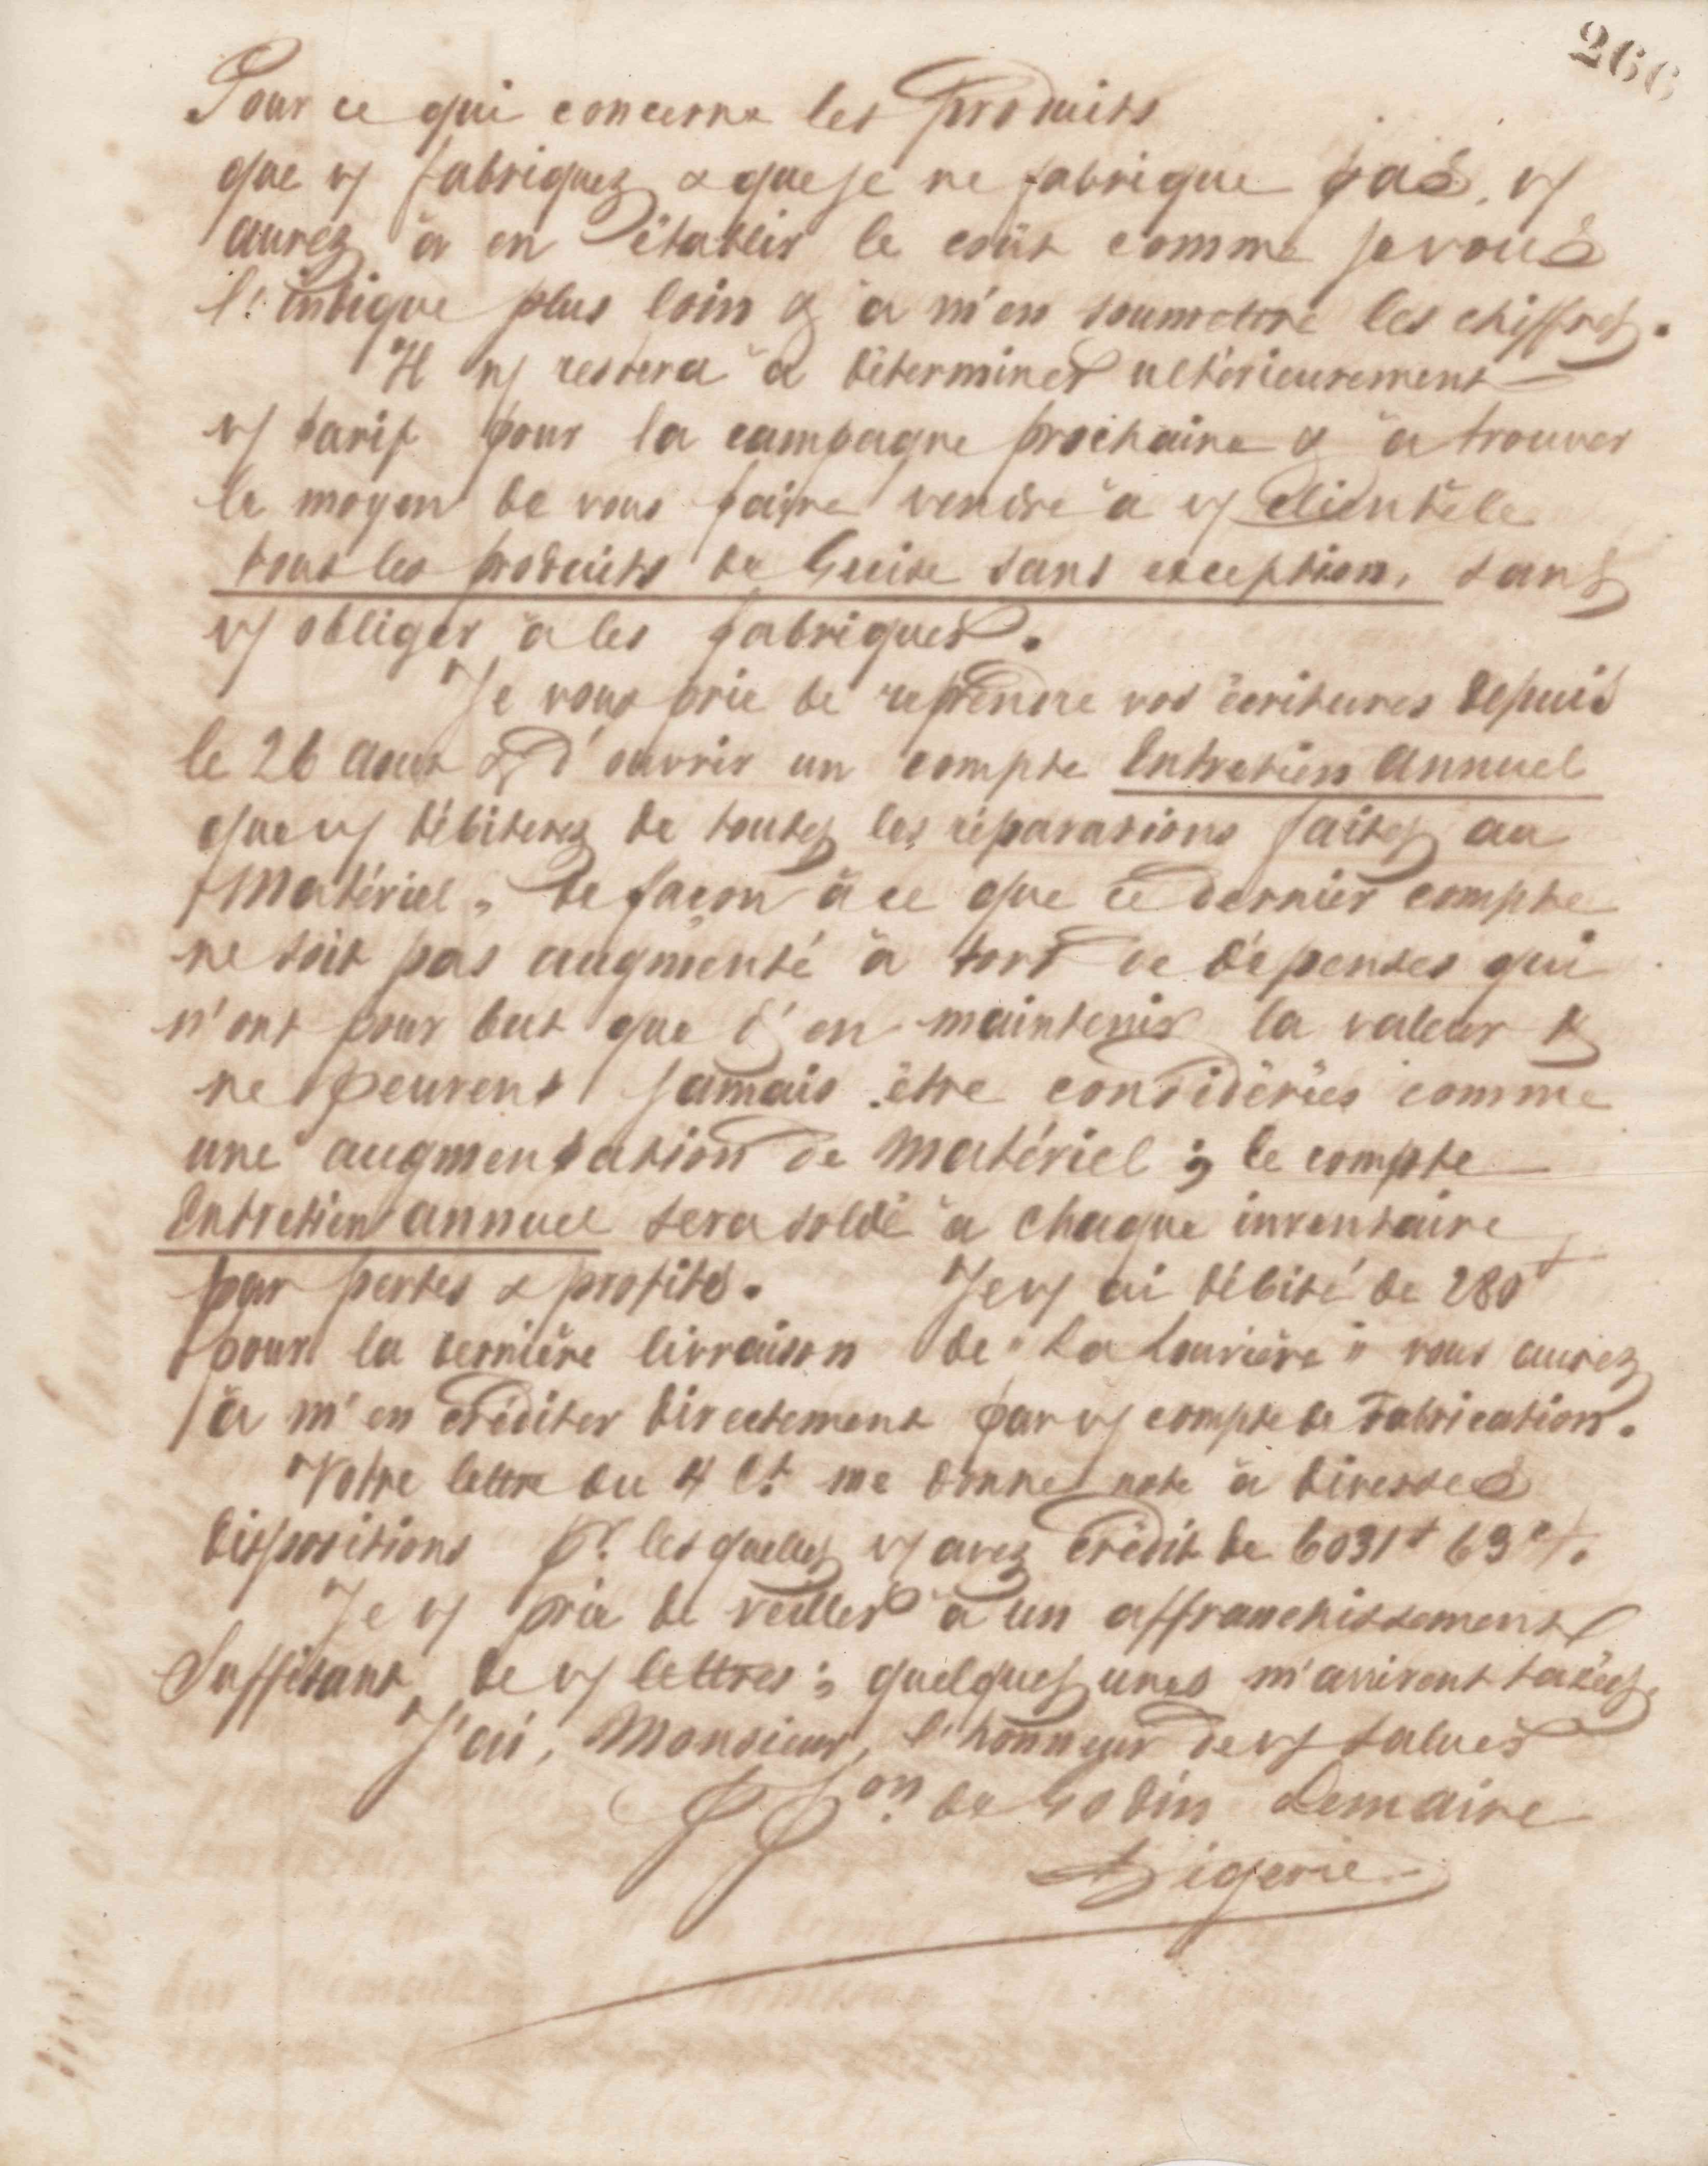 266
Pour ce qui concerne les produits
que vs fabriquez & que je ne fabrique pas, vs
aurez à en établir le coût comme je vous
l'indique plus loin & à m'en soumettre les chiffres.
Il ns restera à déterminer ultérieurement
vs tarif pour la campagne prochaine & à trouver
le moyen de vous faire vendre à vs clientèle
tous les produits de Guise sans exception, sans
vs obliger à les fabriquer.
Je vous prie de reprendre vos écritures depuis
le 26 Aout & d'ouvrir un compte Entretien Annuel
que vs débiterez de toutes les réparations faites au
Matériel, de façon à ce que ce dernier compte
ne soit pas augmenté à tort de dépenses qui
n'ont pour but que d'en maintenir la valeur &
ne peuvent jamais être considérées comme
une augmentation de Matériel ; le compte
Entretien annuel sera soldé à chaque inventaire
par pertes & profits. Je vs ai débité de 280f
pour la dernière livraison de "La Louvière" vous aurez
à m'en créditer directement par vs compte de Fabrication.
Votre lettre du 4 ct me donne note à diverses
dispositions pr lesquelles vs avez crédit de 6031f 63c/.
Je vs prie de veiller à un affranchissement
Suffisant de vs lettres ; quelques unes m'arrivent taxées.
J'ai, Monsieur, l'honneur de vs saluer
PPon de Godin Lemaire